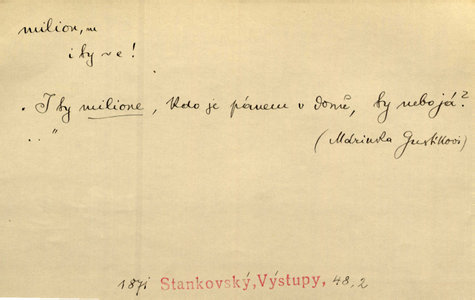 milion, m
i ty v e!
. I ty milione, kdo je pánem v domě, ty nebo já?
. . "
(Mařinka Gustíkovi)
1871 Stankovský, Výstupy, 48, 2